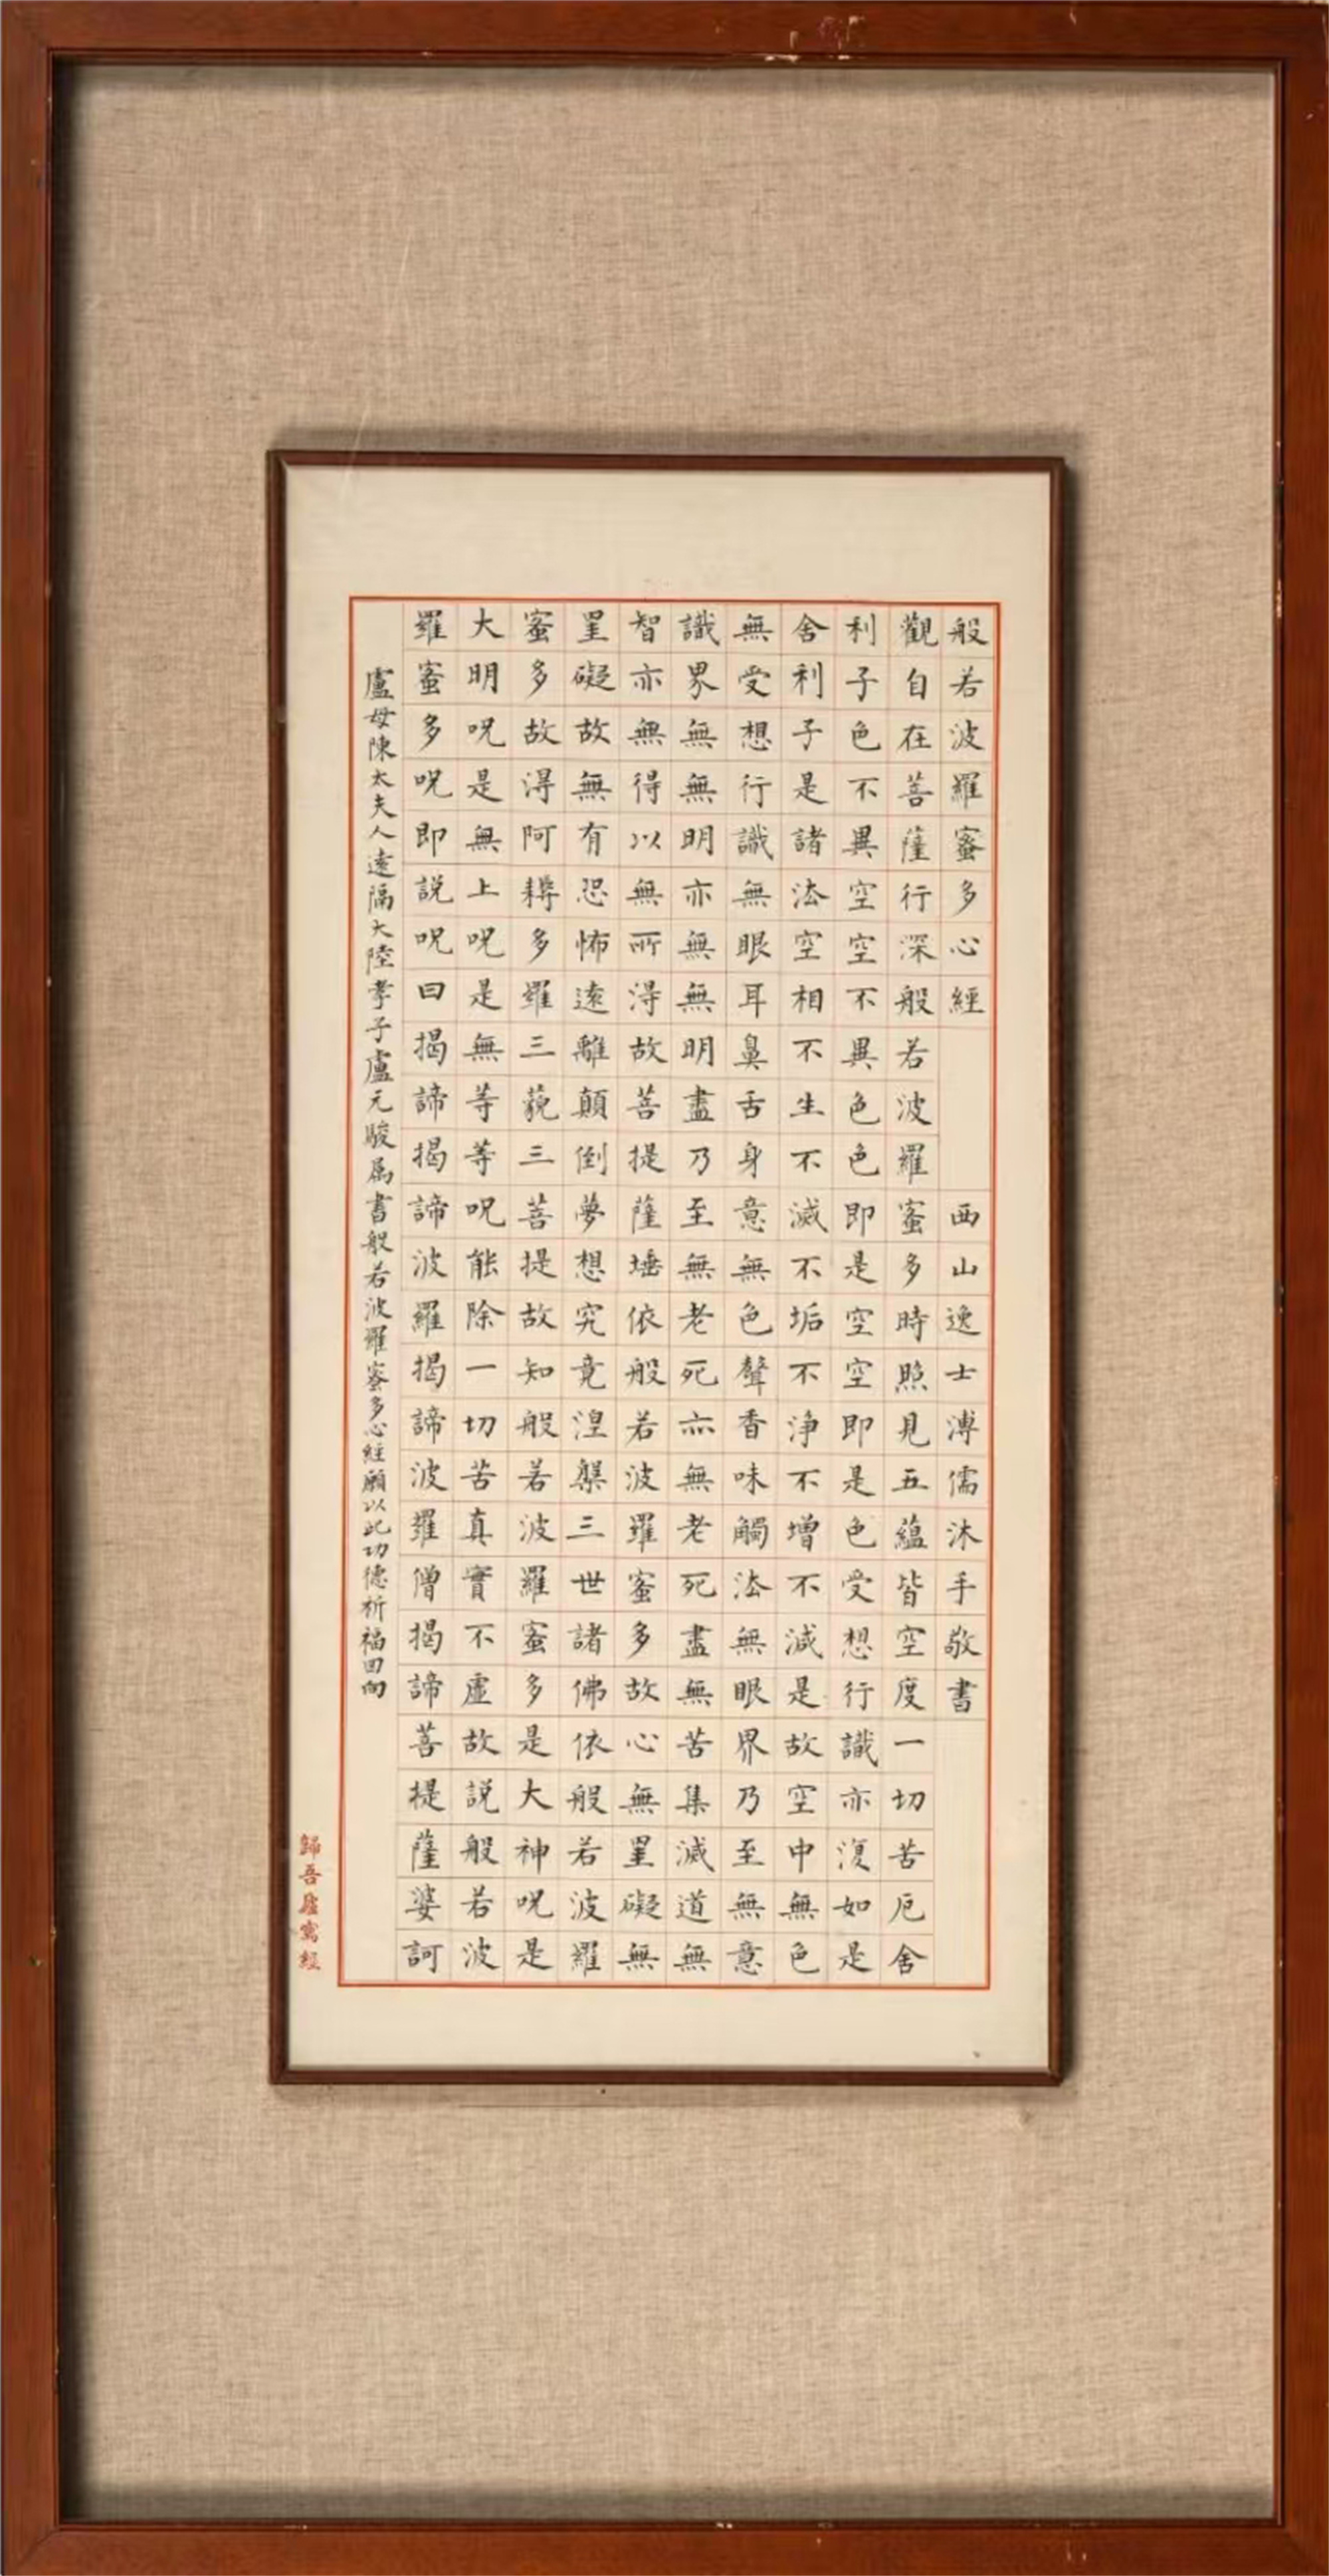 般若波羅蜜多心經 西山逸士溥儒沐手敬書
觀自在菩薩行深般若波羅蜜多時照見五蘊皆空度一切苦厄舍
利子色不異空空不異色色即是空空即是色受想行識亦復如是
舍利子是諸法空相不生不滅不垢不淨不增不減是故空中無色
無受想行識無眼耳鼻舌身意無色聲香味觸法無眼界乃至無意
識界無無明亦無無明盡乃至無老死亦無老死盡無苦集滅道無
智亦無得以無所得故菩提薩埵依般若波羅蜜多故心無罣礙無
罣礙故無有恐怖遠離顛倒夢想究竟涅槃三世諸佛依般若波羅
蜜多故得阿耨多羅三藐三菩提故知般若波羅蜜多是大神呪是
大明呪是無上呪是無等等呪能除一切苦真實不虛故說般若波
羅蜜多呪即說呪曰揭諦揭諦波羅揭諦波羅僧揭諦菩提薩婆訶
盧母陳太夫人遠隔大陸孝子盧元駿屬書般若波羅蜜多心經願以此功德祈福回向
歸吾廬寫經